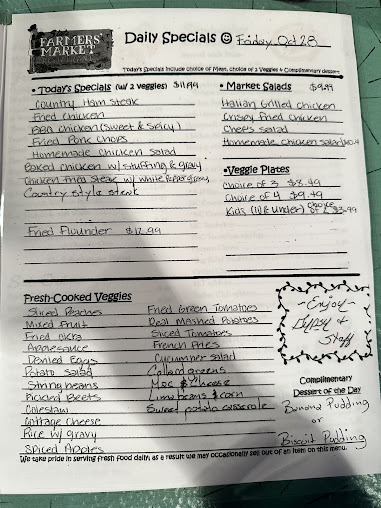 FARMERS'
MARKET
Daily Specials ☺ Friday Oct 28
Today's Specials include choice of Meat, choice of 2 Veggies & Complimentary dessert
•Today's Specials (w/ 2 veggies) $11.99
Country Ham Steak
Fried Chicken
BBQ Chicken (Sweet & Spicy)
Fried Pork Chops
Homemade Chicken Salad
Baked Chicken w/ stuffing & gravy
Chicken Fried Steak w/ white Pepper gravy
Country Style steak
Fried Flounder $12.99
•Market Salads $9.99
Italian Grilled Chicken
Crispy Fried Chicken
Chefs Salad
Homemade Chicken Salad
•Veggie Plates
Choice of 3 $8.49
Choice of 4 $9.49
Kids (10 & under) choice of 2 $3.99
Fresh-Cooked Veggies
Sliced Peaches
Mixed Fruit
Fried Okra
Applesauce
Deviled Eggs
Potato Salad
String beans
Pickled Beets
Coleslaw
Cottage Cheese
Rice w/ gravy
Spiced Apples
Fried Green Tomatoes
Real Mashed Potatoes
Sliced Tomatoes
French Fries
Cucumber salad
Collard greens
Mac & Cheese
Lima beans & corn
Sweet potato casserole
~Enjoy~
Gypsy &
Staff
Complimentary
Dessert of the Day
Banana Pudding
or
Biscuit Pudding
We take pride in serving fresh food daily, as a result we may occasionally sell out of an item on this menu.